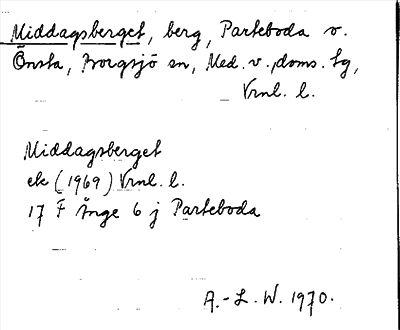 Middagsberget, berg, Parteboda o.
Önsta, Borgsjö sn, Med. v. doms. tg,
Vrnl. l.
Middagsberget
ek (1969) Vrnl. l.
17 F Ånge 6 j Parteboda
A.-L. W. 1970.